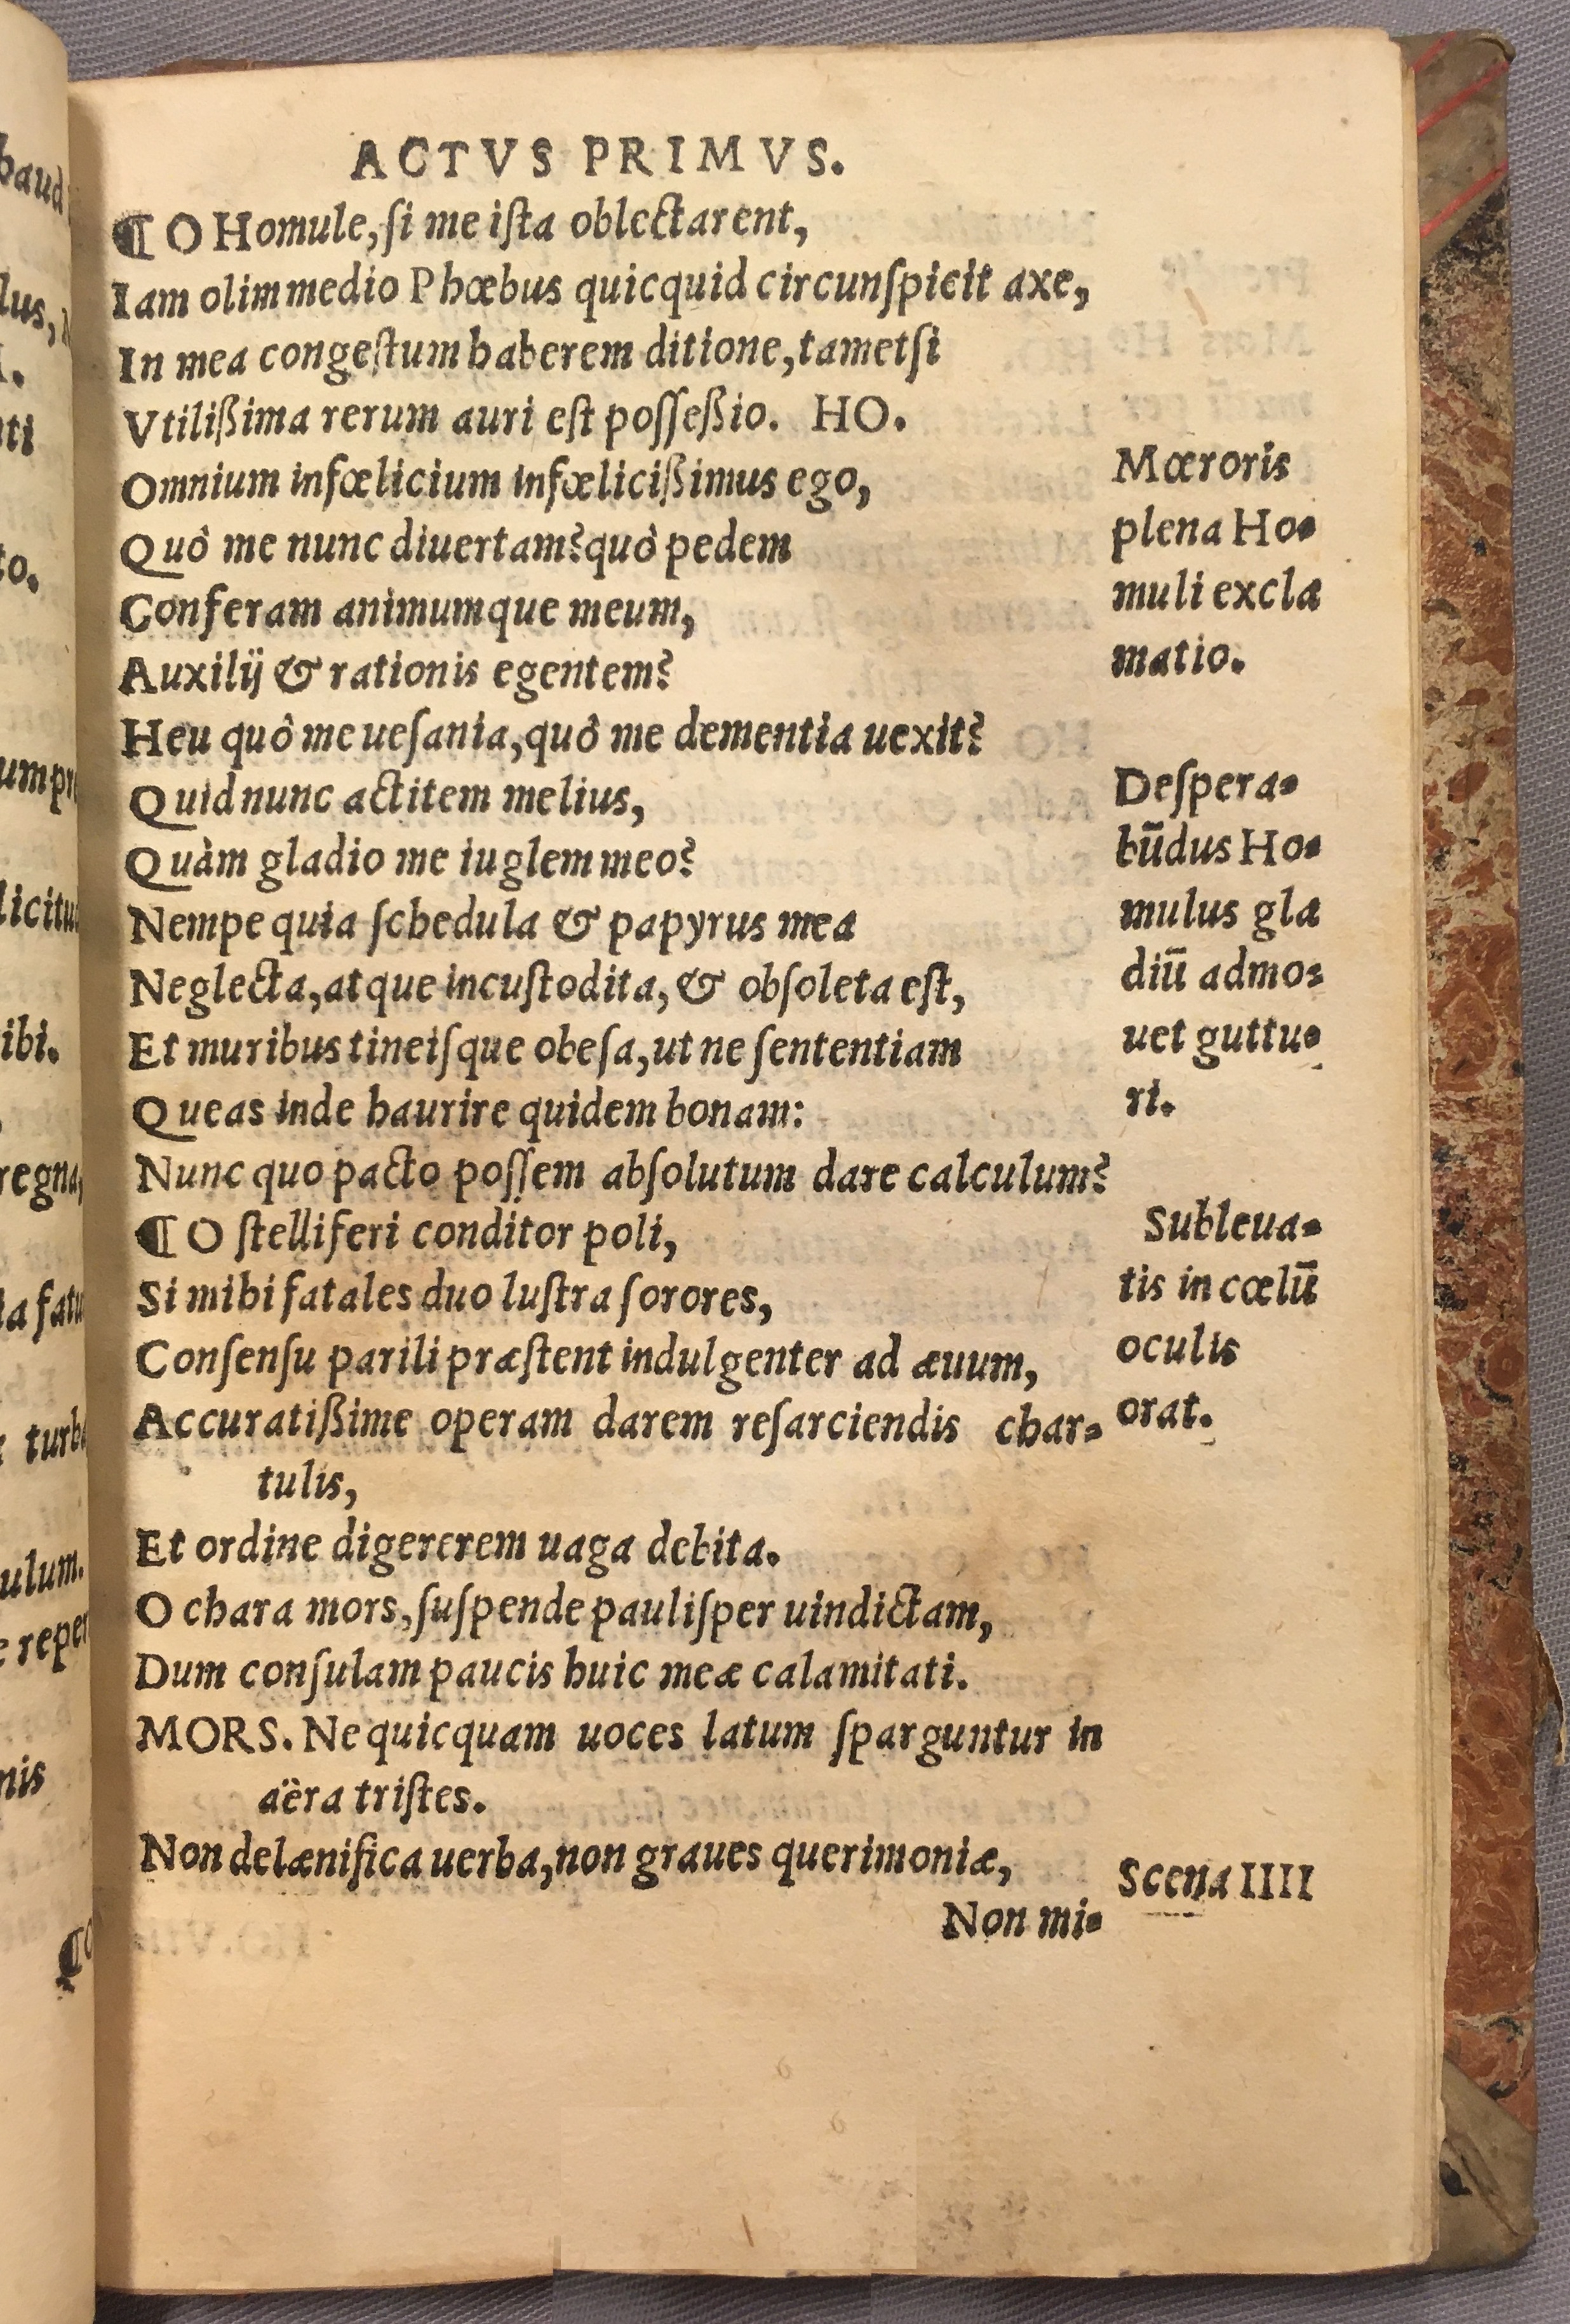 ACTVS PRIMVS.
¶ O Homule, ſi me iſta oblectarent,
Iam olim medio Phœbus quicquid circunſpicit axe,
In mea congeſtum haberem ditione, tametſi
Vtilißima rerum auri eſt poſſeßio. HO.
Omnium infœlicium infœlicißimus ego,
Quò me nunc diuertam? quò pedem
Conferam animumque meum,
Auxilij & rationis egentem?
Heu quò me ueſania, quò me dementia uexit?
Quid nunc actitem melius,
Quàm gladio me iuglem meo?
Nempe quia ſchedula & papyrus mea
Neglecta, atque incuſtodita, & obſoleta eſt,
Et muribus tineiſque obeſa, ut ne ſententiam
Queas inde haurire quidem bonam:
Nunc quo pacto poſſem abſolutum dare calculum?
¶ O ſtelliferi conditor poli,
Si mihi fatales duo luſtra ſorores,
Conſenſu parili præſtent indulgenter ad æuum,
Accuratißime operam darem reſarciendis char-
tulis,
Et ordine digererem uaga debita.
O chara mors, ſuſpende pauliſper uindictam,
Dum conſulam paucis huic meæ calamitati.
MORS. Nequicquam uoces latum ſparguntur in
aëra triſtes.
Non delænifica uerba, non graues querimoniæ,
Non mi-
Mœroris
plena Ho-
muli excla
matio.
Deſpera-
būdus Ho-
mulus gla
diū admo-
uet guttu-
ri.
Subleua-
tis in cœlū
oculis
orat.
Scena IIII
baud
lus,
ti
to.
um pr
licitu
ibi.
regna,
ia fatu
turb
ulum.
reper
nis
¶